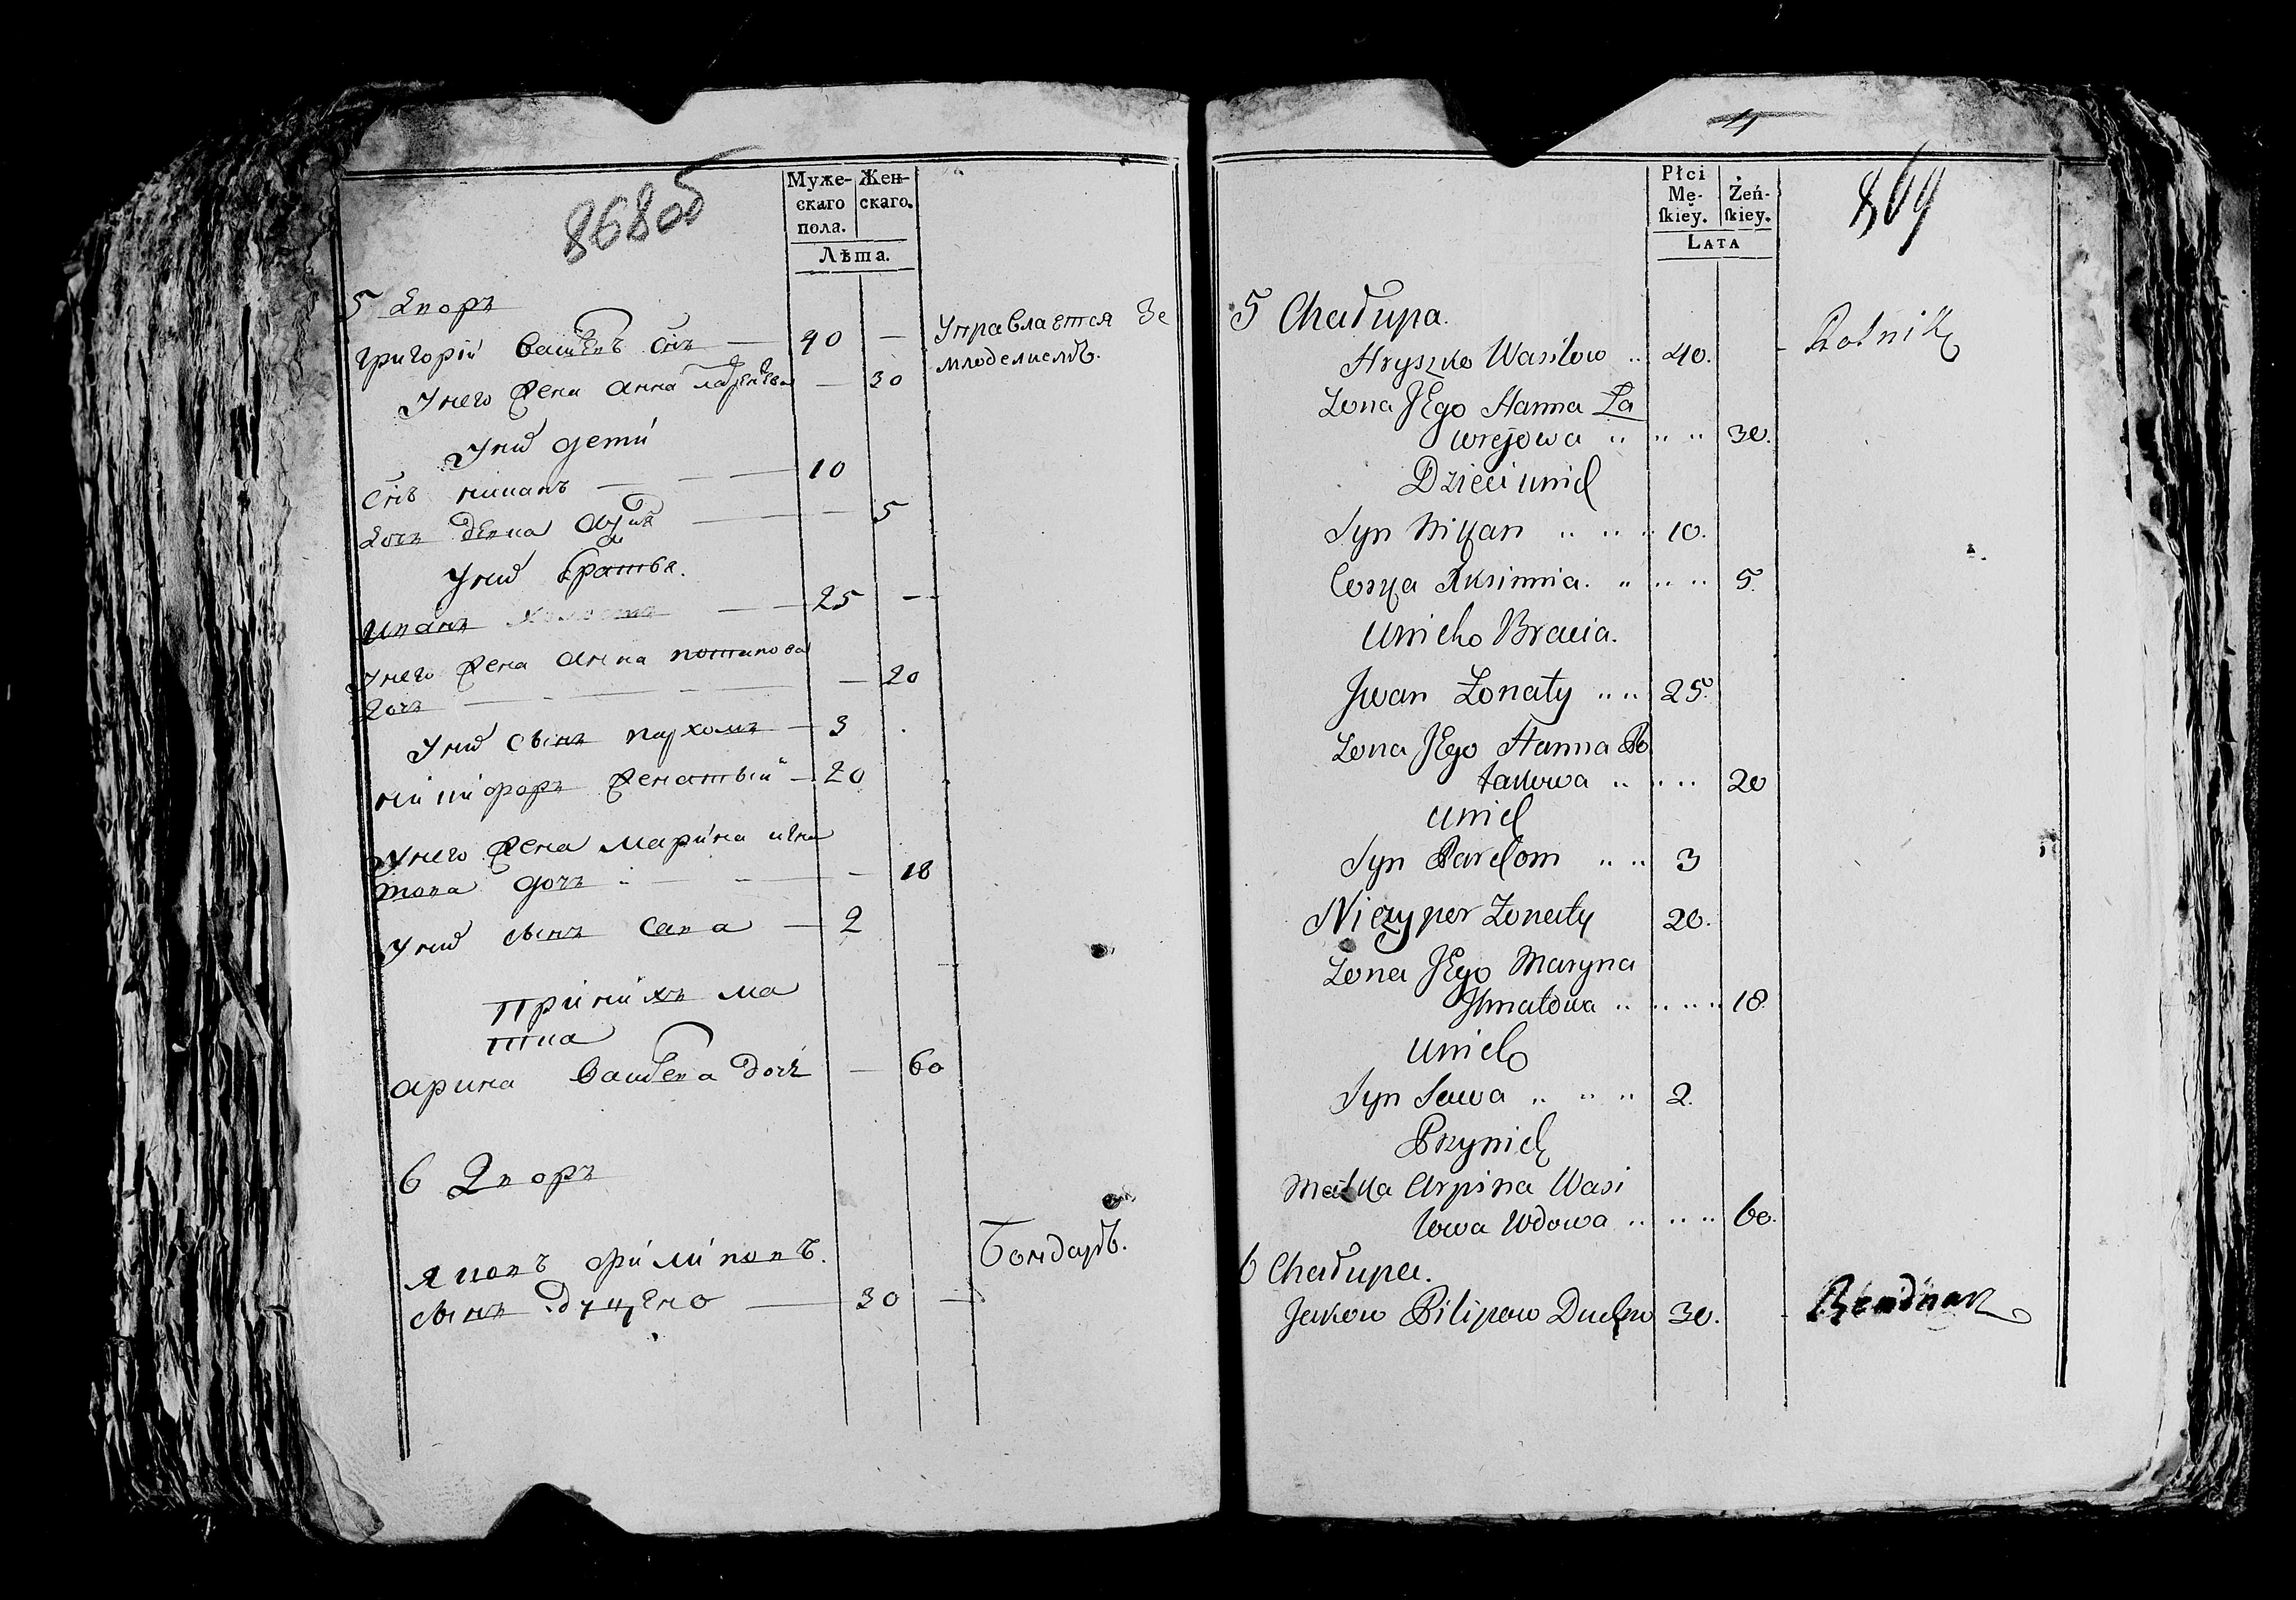 868 об
Муже- Жен-
скаго скаго.
пола.
Лѣта.
5 Дворъ
григорій васильевъ снъ — 40 — Управляется зе
млоделиемъ.
У него жена анна — 30
У них дети
Снъ — 10
Дочь — 5
У них братья.
иванъ — 25 —
У него жена анна потапова
дочь — 20
У них сынъ пархомъ — 3
ничипоръ женатый — 20
У него жена марина игна
това дочь — 18
У них сынъ сава — 2
При нихъ ма
тка
арина васильева дочь — 60
6 Дворъ
яковъ филиповъ Бондаръ.
сынъ — 30 —
4
869
Płci Żeń-
Mę- skiey.
skiey.
LATA
5 Chałupa. Rolnik
Hryszko Wasilow .. 40.
Zona JEgo Hanna Ła
wrejowa .. .. .. 30.
Dzieci u nich
Syn .. .. .. 10.
Corka Aksinnia. .. .. .. 5.
U nieho Bracia.
Jwan Zonaty .. .. 25.
Zona JEgo Hanna Po
tapowa .. .. .. 20
U nich
Syn Parchom .. .. 3
Niczypor Zonaty 20.
Zona JEgo Maryna
Jhnatowa .. .. .. .. 18.
U nich
Syn Sawa .. .. .. 2.
Przy nich
Matka Wasi
lowa Wdowa .. .. .. 60.
6 Chałupa.
Jakow Pilipow 30. Bendnarz